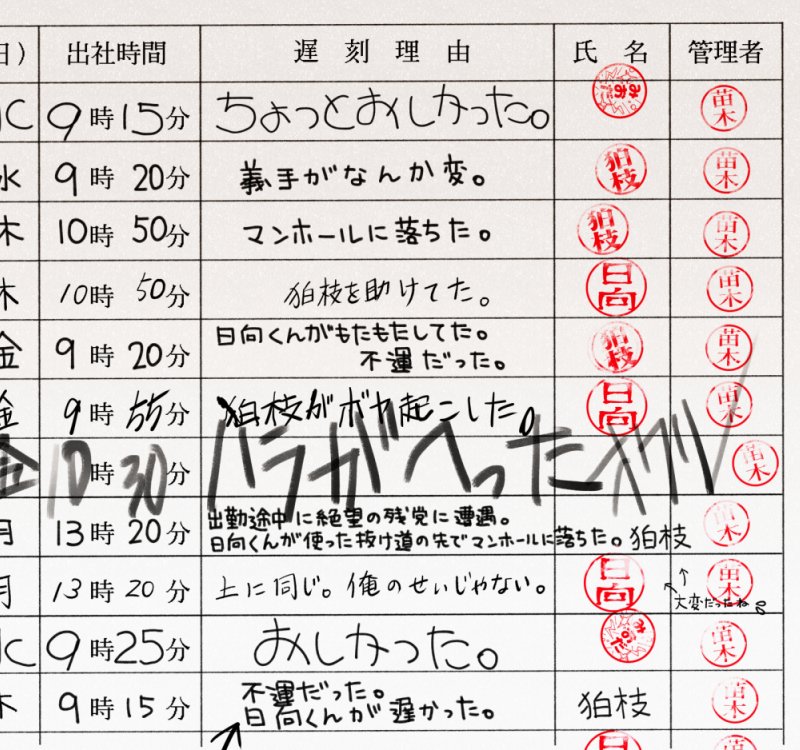 日) 出社時間 遅刻理由 氏名 管理者
水 9時15分 ちょっとおしかった。 苗木
水 9時20分 義手がなんか変。 狛枝 苗木
木 10時50分 マンホールに落ちた。 狛枝 苗木
木 10時50分 狛枝を助けてた。 日向 苗木
金 9時20分 日向くんがもたもたしてた。
不運だった。 狛枝 苗木
金 9時55分 狛枝がボヤ起こした。 日向 苗木
金 10時30分 ハラがへった 苗木
月 13時20分 出勤途中に絶望の残党に遭遇。
日向くんが使った抜け道の先でマンホールに落ちた。 狛枝 苗木
月 13時20分 上に同じ。俺のせいじゃない。 日向 苗木
↑
大変だったね
水 9時25分 おしかった。 苗木
木 9時15分 不運だった。
日向くんが遅かった。 狛枝 苗木